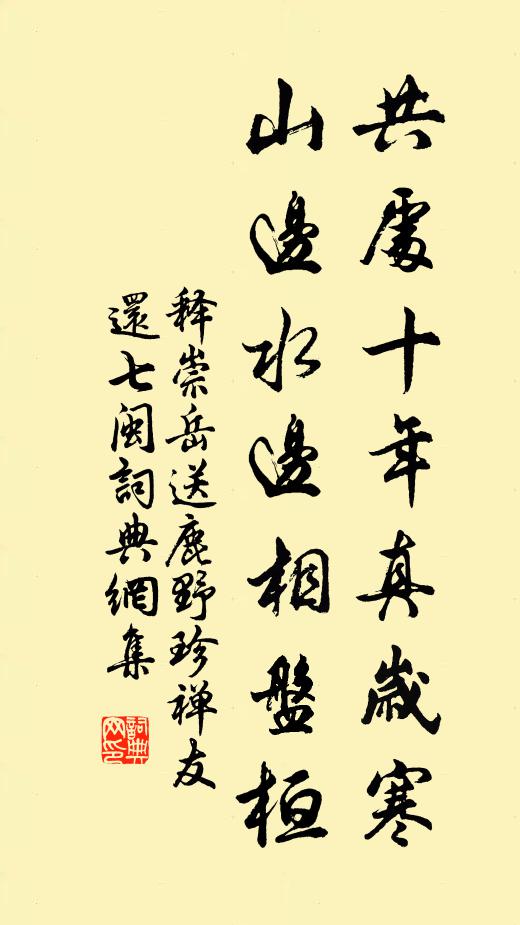 共處十年真歲寒
山邊水邊相盤桓
释崇岳送鹿野珍禅友
還七閩詞典網集
詞典網印